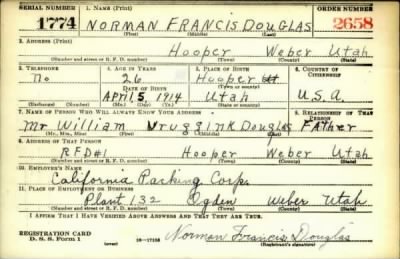 SERIAL NUMBER 1. NAME (Print) ORDER NUMBER
1774 NORMAN FRANCIS DOUGLAS 2658
(First) (Middle) (Last)
2. ADDRESS (Print)
Hooper Weber Utah
(Number and street or R. F. D. number) (Town) (County) (State)
3. TELEPHONE 4. AGE IN YEARS 5. PLACE OF BIRTH 6. COUNTRY OF CITIZENSHIP
No 26 Hooper Ut.
DATE OF BIRTH (Town or county)
April 5, 1914 Utah U.S.A.
(Exchange) (Number) (Mo.) (Day) (Yr.) (State or country)
7. NAME OF PERSON WHO WILL ALWAYS KNOW YOUR ADDRESS 8. RELATIONSHIP OF THAT PERSON
Mr William Vruggink Douglas Father
(Mr., Mrs., Miss) (First) (Middle) (Last)
9. ADDRESS OF THAT PERSON
RFD#1 Hooper Weber Utah
(Number and street or R. F. D. number) (Town) (County) (State)
10. EMPLOYER'S NAME
California Packing Corp.
11. PLACE OF EMPLOYMENT OR BUSINESS
Plant 132 Ogden Weber Utah.
(Number and street or R. F. D. number) (Town) (County) (State)
I AFFIRM THAT I HAVE VERIFIED ABOVE ANSWERS AND THAT THEY ARE TRUE.
REGISTRATION CARD
D. S. S. Form 1 Norman Francis Douglas
(Registrant's signature)